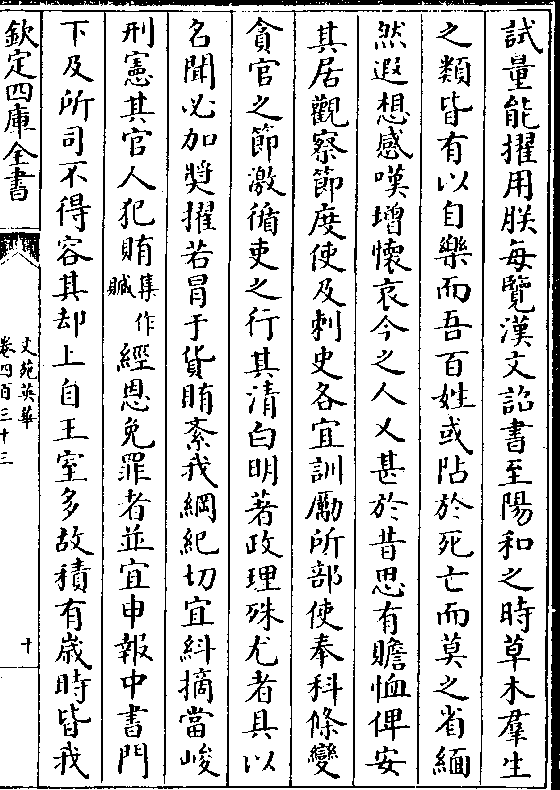 試量能擢用朕每覽漢文詔書至陽和之時草木羣生
之類皆有以自樂而吾百姓或阽於死亡而莫之省緬
然遐想感嘆增懷哀今之人又甚於昔思有贍恤俾安
其居觀察節度使及刺史各宜訓勵所部使奉科條變
貪官之節激循吏之行其清白明著政理殊尤者具以
名聞必加奬擢若冒于貨賄紊我綱紀切宜糾摘當峻
刑憲其官人犯賄集作贓經恩免罪者並宜申報中書門
下及所司不得容其却上自王室多故積有歲時皆我
欽定四庫全書
文苑英華
卷四百三十三
十